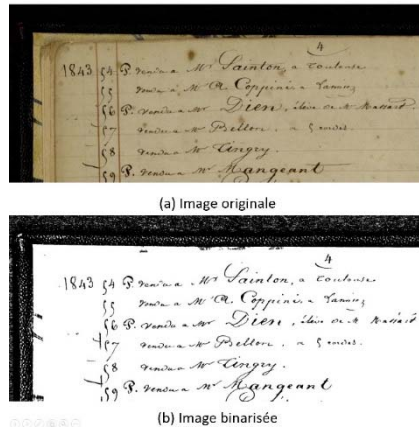 4
1843 54 P. vendu a Mr Sainton, a Toulouse
55 vendu a Mr A. Coppini, a
56 P. vendu a Mr Dien, élève de Mr Massard
57 vendu a Mr Bellon, a
58 vendu a Mr Tingry.
59 P. vendu a Mr Mangeant
(a) Image originale
4
1843 54 P. vendu a Mr Sainton, a Toulouse
55 vendu a Mr A. Coppini, a
56 P. vendu a Mr Dien, élève de Mr Massard
57 vendu a Mr Bellon, a
58 vendu a Mr Tingry.
59 P. vendu a Mr Mangeant
(b) Image binarisée